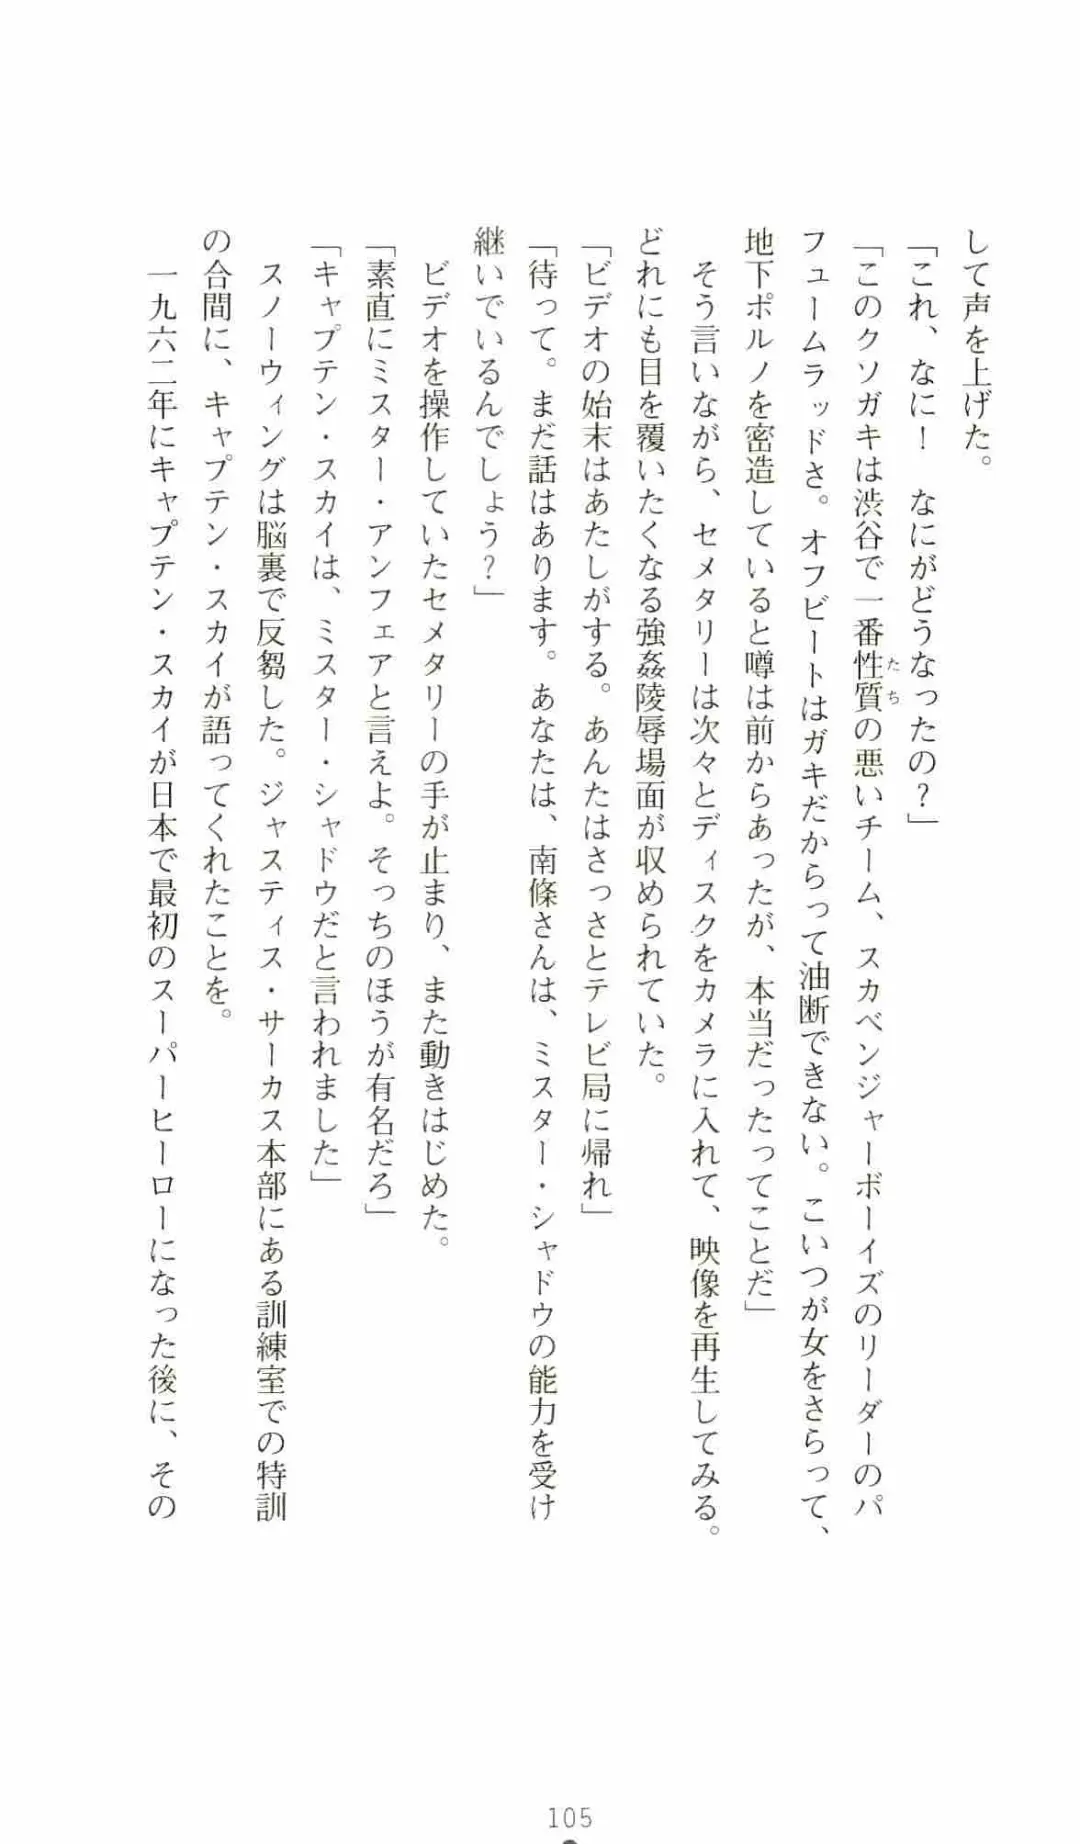 して声を上げた。
「これ、なに！　なにがどうなったの？」
「このクソガキは渋谷で一番性質の悪いチーム、スカベンジャーボーイズのリーダーのパ
たち
フュームラッドさ。オフビートはガキだからって油断できない。こいつが女をさらって、
地下ポルノを密造していると噂は前からあったが、本当だったってことだ」
　そう言いながら、セメタリーは次々とディスクをカメラに入れて、映像を再生してみる。
どれにも目を覆いたくなる強姦陵辱場面が収められていた。
「ビデオの始末はあたしがする。あんたはさっさとテレビ局に帰れ」
「待って。まだ話はあります。あなたは、南條さんは、ミスター・シャドウの能力を受け
継いでいるんでしょう？」
　ビデオを操作していたセメタリーの手が止まり、また動きはじめた。
「素直にミスター・アンフェアと言えよ。そっちのほうが有名だろ」
「キャプテン・スカイは、ミスター・シャドウだと言われました」
　スノーウィングは脳裏で反芻した。ジャスティス・サーカス本部にある訓練室での特訓
の合間に、キャプテン・スカイが語ってくれたことを。
　一九六二年にキャプテン・スカイが日本で最初のスーパーヒーローになった後に、その
105